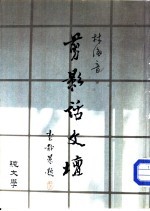 林海音
剪影話文壇
純文學